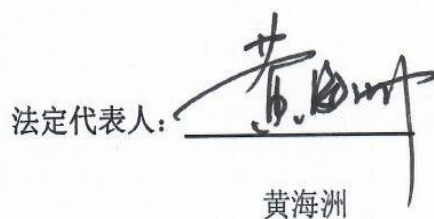 法定代表人：黄海洲
黄海洲